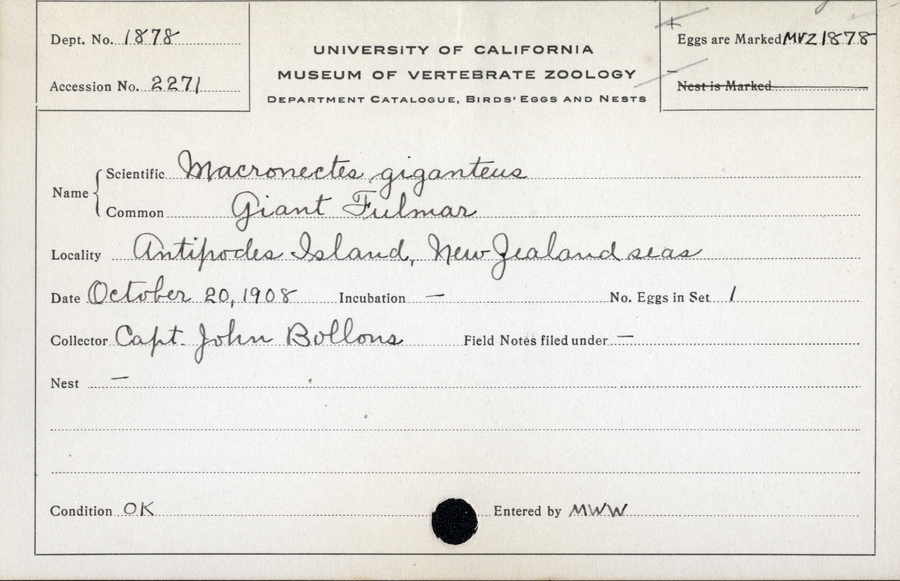 Dept. No. 1878
Accession No. 2271
UNIVERSITY OF CALIFORNIA
MUSEUM OF VERTEBRATE ZOOLOGY
DEPARTMENT CATALOGUE, BIRDS' EGGS AND NESTS
Eggs are Marked MVZ 1878
Nest is Marked
Name { Scientific Macronectes giganteus
Common Giant Fulmar
Locality Antipodes Island, New Zealand seas
Date October 20, 1908 Incubation — No. Eggs in Set 1
Collector Capt. John Bollons Field Notes filed under —
Nest —
Condition OK Entered by MWW